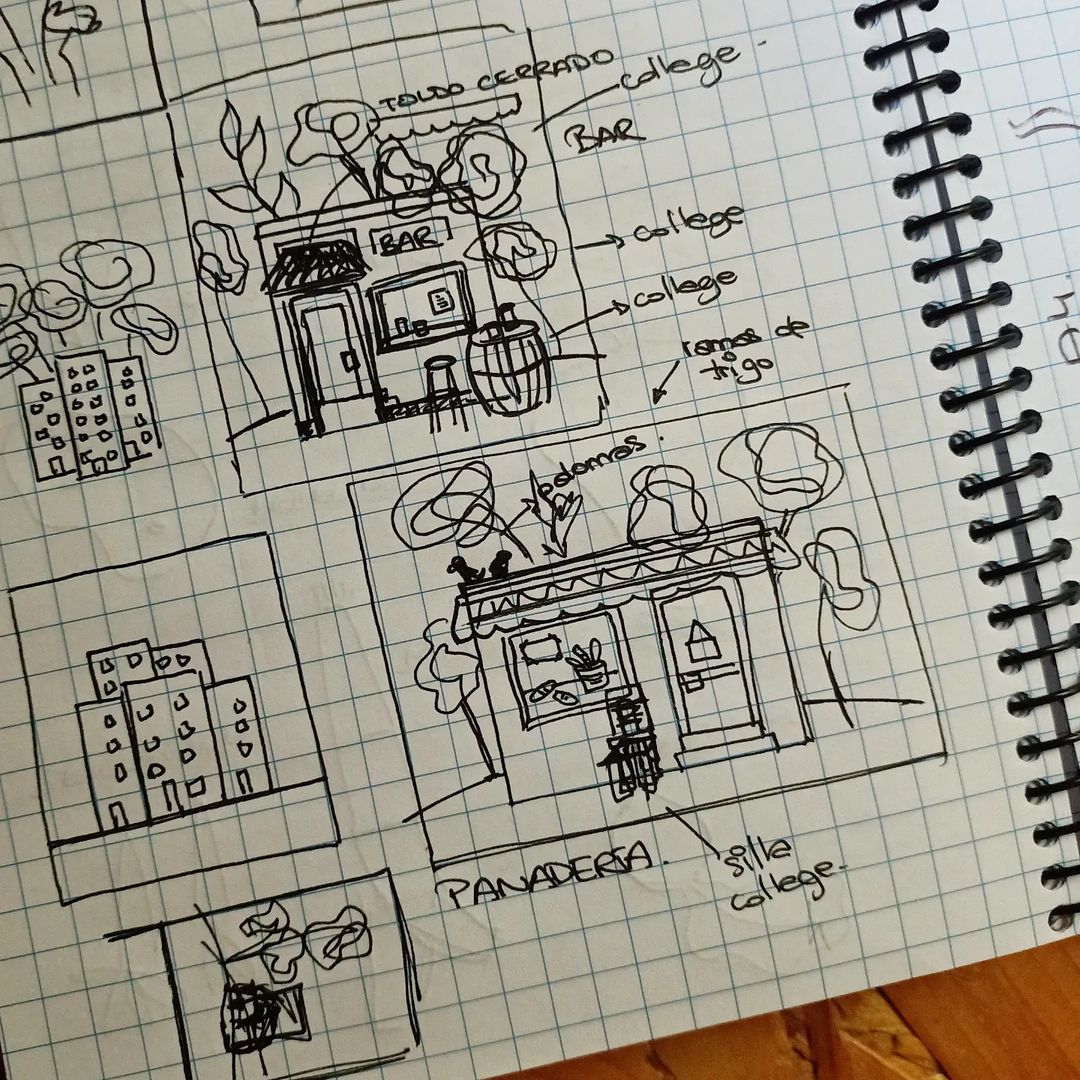 TOLDO CERRADO
collage
BAR
BAR
collage
collage
ramas de
trigo
palomas.
PANADERÍA.
Silla
collage.